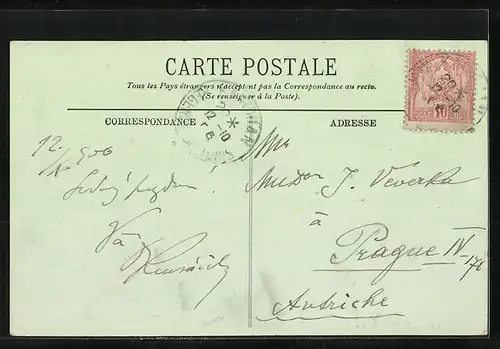 CARTE POSTALE
Tous les Pays étrangers n'acceptent pas la Correspondance au recto.
(Se renseigner à la Poste).
CORRESPONDANCE
ADRESSE
12/X 906
Mr
MUDr J. Veverka
Váš
à
Prague IV
176
Autriche
10
12-10
6